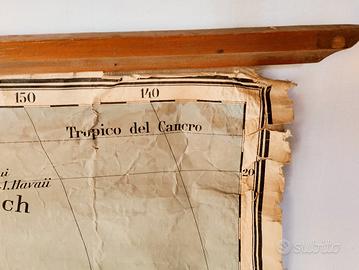 150 140
Tropico del Cancro
20
I. Havaii
ch
subito